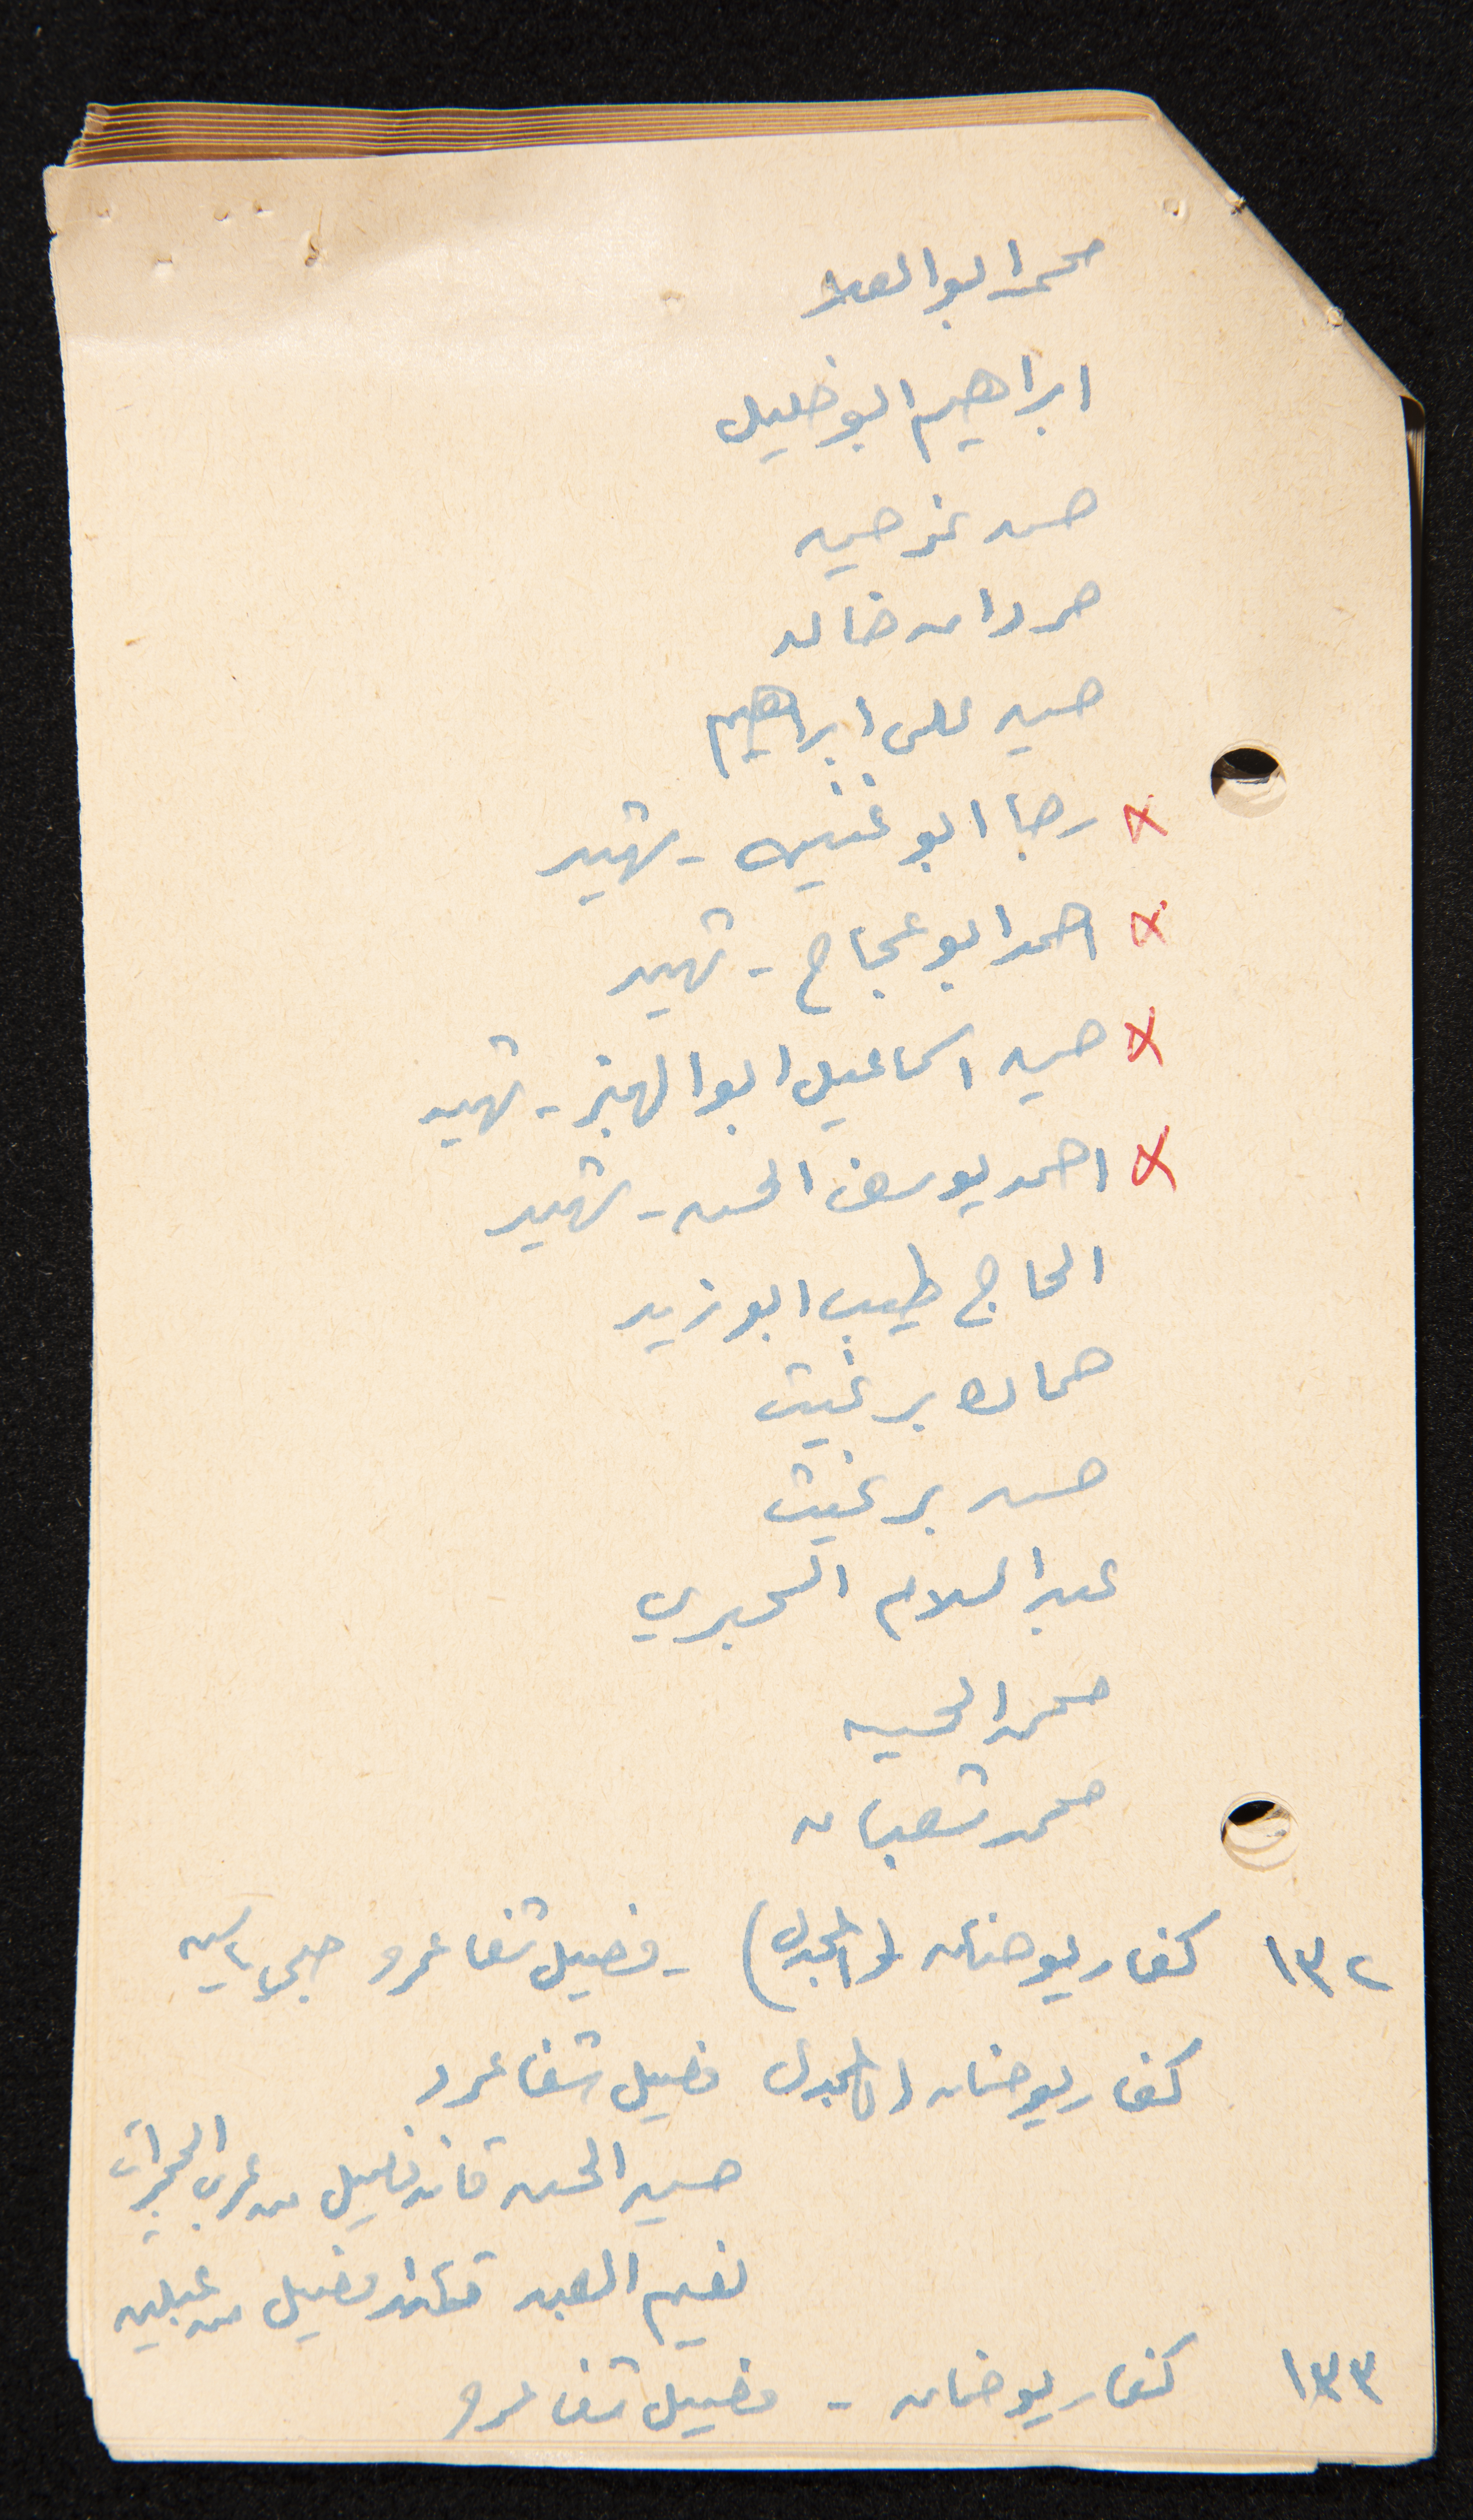 محمد ابو العلا
ابراهيم ابو خليل
حسن حسين
حمدان خالد
حسين علي ابراهيم
× رجا ابو غنيم - شهيد
× احمد ابو عجاج - شهيد
× حسين اسماعيل ابو الهيز - شهيد
× احمد يوسف الحسن - شهيد
الحاج طيب ابو زيد
حماده برغيث
حسن برغيث
عبد السلام
محمد الحسين
محمد شعبان
١٣٢ كفار يوحنان (المجدل) - فصيل شفا عمرو
كفار يوحنان المجدل فصيل شفا عمرو
حسين الحسن قائد فصيل من عرب الحجيرات
نعيم العبد قائد فصيل من عبلين
١٣٣ كفار يوحنان - فصيل شفا عمرو